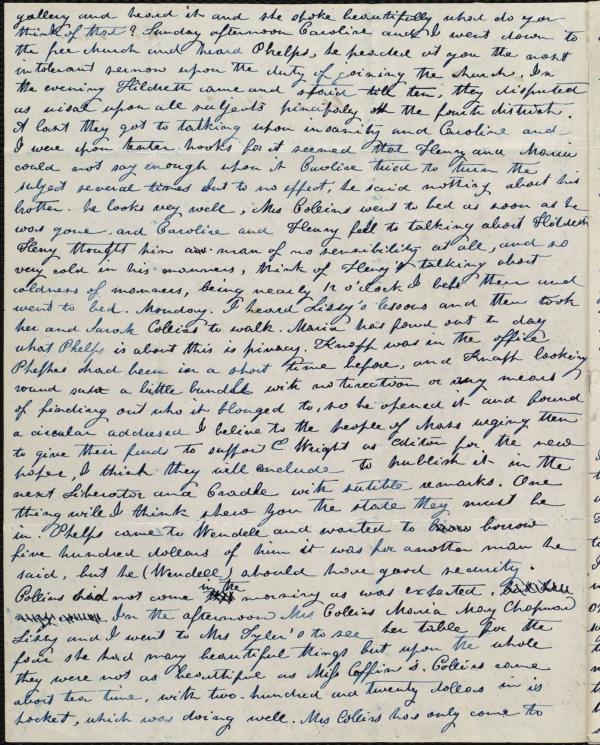 gallery and heard it and she spoke beautifully what do you
think of that? Sunday afternoon Caroline and I went down to
the free church and heard Phelps, he preached at you the most
intolerant sermon upon the duty of joining the church. In
the evening Hildreth came and staid till ten, they disputed
as usual upon all subjects principaly the fourth district.
At last they got to talking upon insanity and Caroline and
I were upon tenter hooks for it seemed that Henry and Maria
could not say enough upon it Caroline tried to turn the
subject several times but to no effect, he said nothing about his
brother. he looks very well, Mrs Collins went to bed as soon as he
was gone, and Caroline and Henry fell to talking about Hildreth
Heny thought him a man of no sensibility at all, and so
very cold in his manners, think of Henry's talking about
coldness of manners, being nearly 12 o'clock I left them and
went to bed. Monday. I heard Lissy's lessons and then took
her and Sarah Collins to walk. Maria has found out to day
what Phelps is about this is privacy. Knapp was in the office
Phelps had been in a short time before, and Knapp looking
round saw a little bundle with no direction or any means
of finding out who it blonged to, so he opened it and found
a circular addressed I belive to the people of Mass urging them
to give their funds to support E Wright as editor for the new
paper, I think they will conclude to publish it in the
next Liberator and Cradle with sutible remarks. One
thing will I think shew you the state they must be
in. Phelps came to Wendell and wanted to borrow
five hundred dollars of him it was for another man he
said, but he (Wendell) should have good security.
Collins had not come in the morning as was expected,
In the afternoon Mrs Collins Maria Mary Chapman
Lissy and I went to Mrs Tyler's to see her table for the
fair she had many beautiful things but upon the whole
they were not as beautiful as Miss Coffin's. Collins came
about tea time, with two hundred and twenty dollars in is
pocket, which was doing well. Mrs Collins has only come to